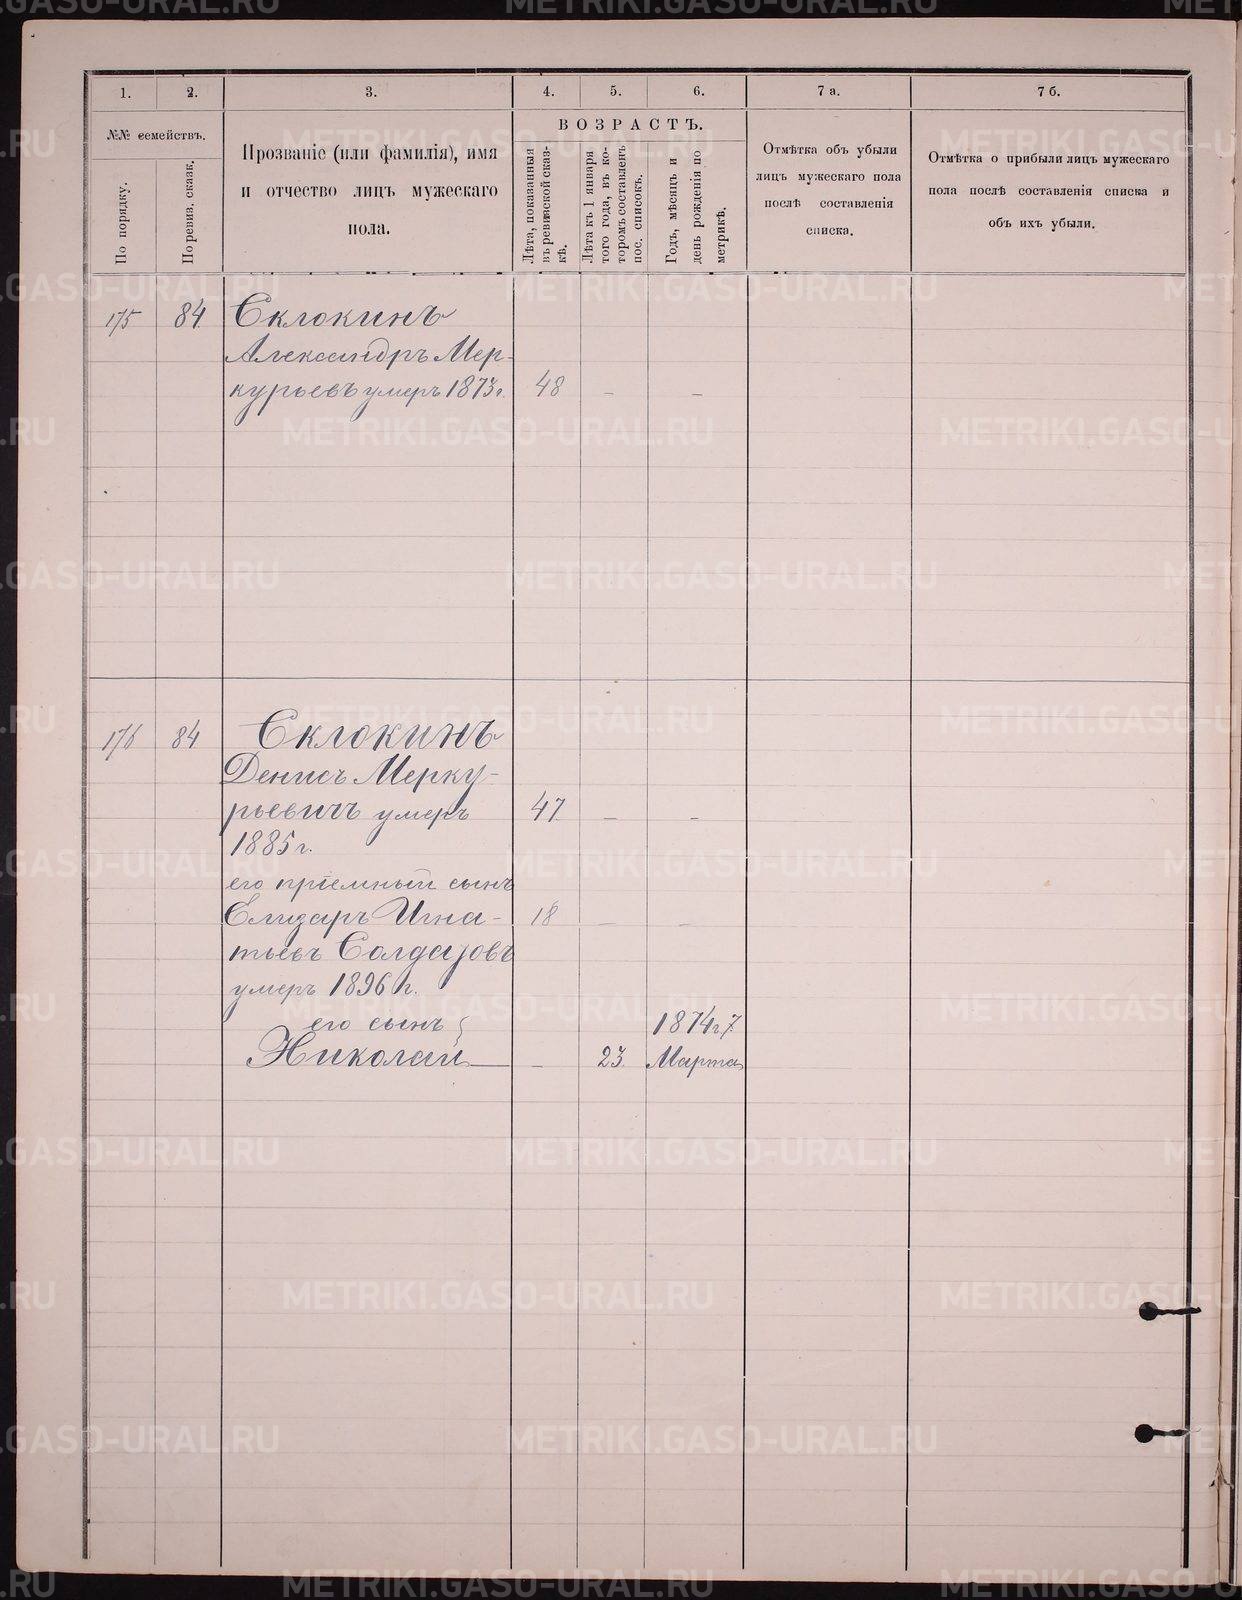 1.
2.
3.
4.
5.
6.
7 а.
7 б.
№№ семействъ.
По порядку.
По ревиз. сказк.
Прозваніе (или фамилія), имя
и отчество лицъ мужескаго
пола.
ВОЗРАСТЪ.
Лѣта, показанныя
въ ревизской сказ-
кѣ.
Лѣта къ 1 января
того года, въ ко-
торомъ составленъ
пос. списокъ.
Годъ, мѣсяцъ и
день рожденія по
метрикѣ.
Отмѣтка объ убыли
лицъ мужескаго пола
послѣ составленія
списка.
Отмѣтка о прибыли лицъ мужескаго
пола послѣ составленія списка и
объ ихъ убыли.
175 84 Склокинъ
Александръ Мер-
курьевъ умеръ 1873 г. 48 - -
176 84 Склокинъ
Денисъ Мерку-
рьевичъ умеръ 47 - -
1885 г.
его пріемный сынъ
Елизаръ Игна- 18 - -
тьевъ Солдатовъ
умеръ 1896 г.
его сынъ 1874 г. 7
Николай - 23 Марта
METRIKI.GASO-URAL.RU